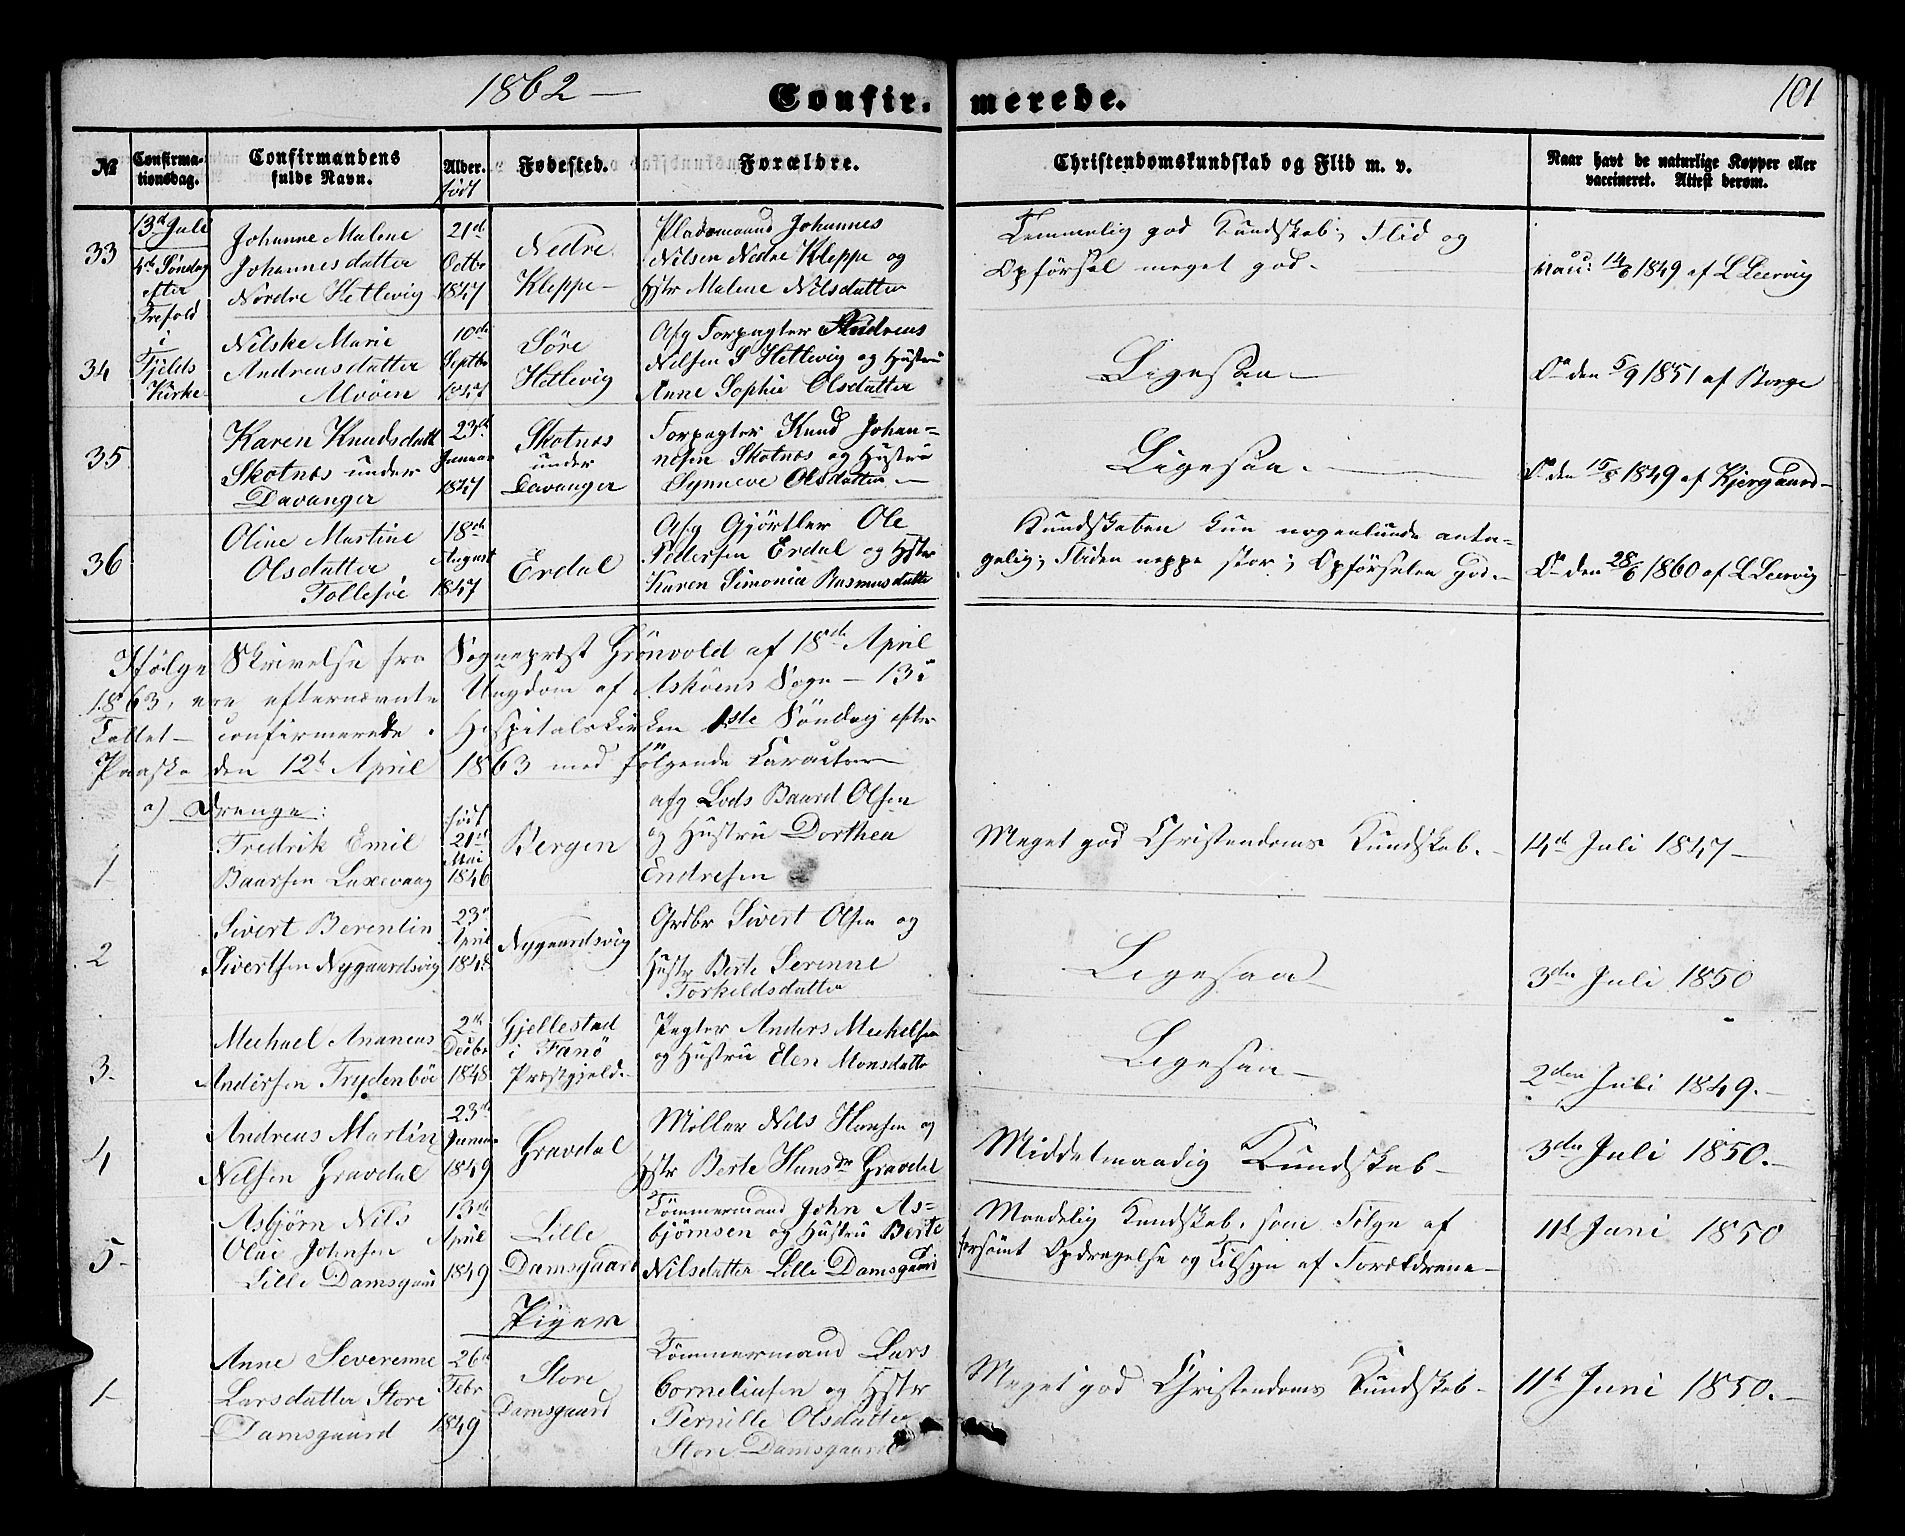 1862 —
Confir. merede.
101
№
Confirma-
tionsdag.
Confirmandens
fulde Navn.
Alder.
født
Fødested.
Forældre.
Christendomskundskab og Flid m. v.
Naar havt de naturlige Kopper eller
vaccineret. Attest derom.
33
13d Juli
4de Søndag
efter
Trefold
i
Fjelds
Kirke
Johanne Malene
Johannesdatter
Nordre Hetlevig
21de
Octbr
1847
Nedre
Kleppe —
Pladsmand Johannes
Nilsen Nedre Kleppe og
Hstr Malene Nilsdatter
Temmelig god Kundskab; Flid og
Opførsel meget god.
Vacc: 14/6 1849 af L Leervig
34
Nilske Marie
Andreasdatter
Alvøen
10de
Septbr
1847
Søre
Hetlevig
Afg Forpagter Andreas
Nilsen S Hetlevig og Hustru
Anne Sophie Olsdatter
Ligesaa —
Do den 5/9 1851 af Storge
35
Karen Knudsdatt
Skotnæs under
Davanger
23de
Januar
1847
Skotnæs
under
Davanger
Forpagter Knud Johan=
nesen Skotnæs og Hustru
Synneve Olsdatter —
Ligesaa. —
Do den 15/8 1849 af Kjergaard —
36
Oline Martine
Olsdatter
Follesöe
18de
August
1847
Erdal
Afg Gjørtler Ole
Pedersen Erdal og Hstr
Karen Simonia Rasmusdatter
Kundskaben kun nogenlunde anta=
gelig; Fliden neppe stor; Opførselen god. —
Do den 28/6 1860 af L Leervig
Ifølge Skrivelse fra Sogneprest Grönvold af 18de April
1863, ere efternævnte Ungdom af Askøens Sogn — 13 i
Tallet — confirmerede i Hospitalskirken 1ste Søndag efter
Paaske den 12te April 1863 med følgende Caracterer
a) Drenge:
1
Fredrik Emil
Baarsen Laxevaag
født
21de
Mai
1846
Bergen
afg Lods Baard Olsen
og Hustru Dorthea
Endresen
Meget god Christendoms Kundskab. —
14de Juli 1847 —
2
Sivert Berentin
Sivertsen Nygaardsvig
23de
April
1848
Nygaardsvig
Grdbr Sivert Olsen og
Hustr Berte Serenne
Torkeldsdatter
Ligesaa
3die Juli 1850
3.
Mechael Ananeus
Andersen Frydenböe
2de
Decbr
1848
Gjellestad
i Fanö
Præstgjeld.
Pagter Anders Mechelsen
og Hustru Elen Monsdatter
Ligesaa —
2den Juli 1849. —
4
Andreas Martin
Nilsen Gravdal
23de
Januar
1849
Gravdal
Møller Nils Hansen og
Hstr Berte Hansdr Gravdal
Middelmaadig Kundskab —
3die Juli 1850. —
5
Asbjörn Nils
Olai Johnsen
Lille Damsgaard
13de
April
1849
Lille
Damsgaard
Tømmermand John As=
bjørnsen og Hustru Berte
Nilsdatter Lille Damsgaard
Maadelig Kundskab, som Følge af
forsømt Opdragelse og Tilsyn af Forældrene —
11te Juni 1850
Piger
1
Anne Severenne
Larsdatter Store
Damsgaard
26de
Febr
1849
Store
Damsgaard
Tømmermand Lars
Corneliusen og Hstr
Pernille Olsdatter
Store Damsgaard
Meget god Christendoms Kundskab. —
11te Juni 1850. —